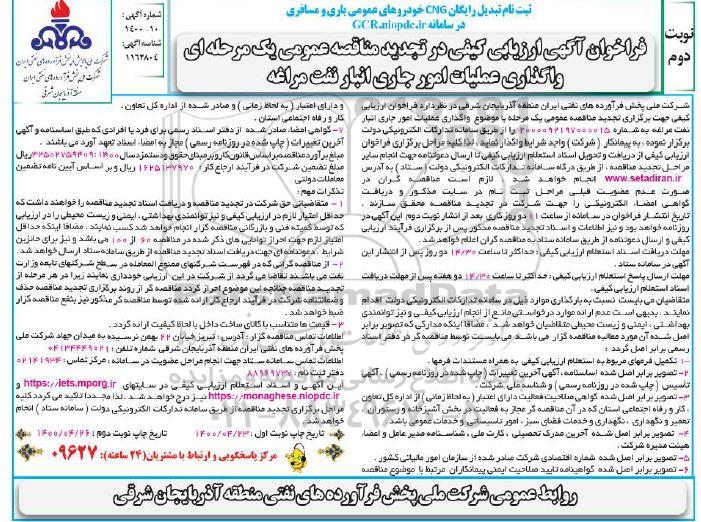 ثبت نام تبدیل رایگان CNG خودروهای عمومی باری و مسافری
در سامانه GCR.niopdc.ir
نوبت
دوم
فراخوان آگهی ارزیابی کیفی در تجدید مناقصه عمومی یک مرحله ای
واگذاری عملیات امور جاری انبار نفت مراغه
شماره آگهی:
۱۴۰۰-۱۰
شناسه آگهی:
۱۱۶۲۸۰۴
شرکت ملی پخش فرآورده های نفتی ایران
منطقه آذربایجان شرقی
شرکت ملی پخش فرآورده های نفتی ایران منطقه آذربایجان شرقی در نظر دارد فراخوان ارزیابی
کیفی جهت برگزاری تجدید مناقصه عمومی یک مرحله با موضوع واگذاری عملیات امور جاری انبار
نفت مراغه به شماره ۲۰۰۰۰۹۲۱۹۷۰۰۰۰۱۵ را از طریق سامانه تدارکات الکترونیکی دولت
برگزار نموده، به پیمانکار (شرکت) واجد شرایط واگذار نماید، لذا کلیه مراحل برگزاری فراخوان
ارزیابی کیفی از دریافت و تحویل اسناد استعلام ارزیابی کیفی تا ارسال دعوتنامه جهت انجام سایر
مراحل تجدید مناقصه، از طریق درگاه سامانه تدارکات الکترونیکی دولت (ستاد) به آدرس
www.setadiran.ir انجام خواهد شد لازم است مناقصه گران در
صورت عدم عضویت قبلی مراحل ثبت نام در سایت مذکور و دریافت
گواهی امضاء الکترونیکی را جهت شرکت در تجدید مناقصه محقق سازند.
تاریخ انتشار فراخوان در سامانه از ساعت ۱۱ دو روز کاری بعد از انتشار نوبت دوم این آگهی در
روزنامه خواهد بود و نیز اطلاعات و اسناد تجدید مناقصه مذکور پس از برگزاری فرآیند ارزیابی
کیفی و ارسال دعوتنامه از طریق سامانه ستاد به مناقصه گران اعلام خواهد شد.
مهلت دریافت اسناد استعلام ارزیابی کیفی: حداکثر تا ساعت ۱۴/۳۰ دو روز پس از انتشار این
آگهی در سامانه ستاد.
مهلت ارسال پاسخ استعلام ارزیابی کیفی: حداکثر تا ساعت ۱۴/۳۰ دو هفته پس از مهلت دریافت
اسناد استعلام ارزیابی کیفی.
متقاضیان می بایست نسبت به بارگذاری موارد ذیل در سامانه تدارکات الکترونیکی دولت اقدام
نمایند، بدیهی است عدم ارائه موارد درخواستی مانع از انجام ارزیابی کیفی و نیز توانمندی
بهداشتی، ایمنی و زیست محیطی متقاضیان خواهد شد، مضافا اینکه مدارکی که تصویر برابر
اصل شده آن مورد مطالبه مناقصه گزار می باشد می بایست توسط مناقصه گر در دفتر اسناد
رسمی برابر اصل گردد:
۱- تکمیل فرمهای مربوط به استعلام ارزیابی کیفی به همراه مستندات فرمها.
۲- تصویر برابر اصل شده اساسنامه، آگهی آخرین تغییرات (چاپ شده در روزنامه رسمی)، آگهی
تأسیس (چاپ شده در روزنامه رسمی) و شناسه ملی شرکت.
۳- تصویر برابر اصل شده گواهی صلاحیت فعالیت دارای اعتبار (به لحاظ زمانی) از اداره کل تعاون
، کار و رفاه اجتماعی استان که در آن مناقصه گر مجاز به فعالیت در بخش آشپزخانه و رستوران،
تعمیر و نگهداری، نگهداری و خدمات فضای سبز، امور تاسیساتی و خدمات عمومی باشد.
۴- تصویر برابر اصل شده آخرین مدرک تحصیلی، کارت ملی، شناسنامه مدیر عامل و اعضاء
هیئت مدیره شرکت.
۵- تصویر برابر اصل شده شماره اقتصادی شرکت صادر شده از سازمان امور مالیاتی کشور.
۶- تصویر برابر اصل شده گواهینامه تایید صلاحیت ایمنی پیمانکاران مرتبط با موضوع مناقصه
و دارای اعتبار (به لحاظ زمانی) و صادر شده از اداره کل تعاون،
کار و رفاه اجتماعی استان.
۷- گواهی امضاء صادر شده از دفتر اسناد رسمی برای فرد یا افرادی که طبق اساسنامه و آگهی
آخرین تغییرات (چاپ شده در روزنامه رسمی) مجاز به امضاء اسناد تعهد آور می باشند.
مبلغ برآورد مناقصه بر اساس قانون کار و بر مبنای حقوق و دستمزد سال ۱۴۰۰: ۳۲۵۰۲۷۵۹۴۰۹ ریال
مبلغ تضمین شرکت در فرآیند ارجاع کار: ۱۶۲۵۱۳۷۹۷۰ ریال و بر اساس آیین نامه تضمین
معاملات دولتی
تذکرات مهم:
۱- متقاضیانی حق شرکت در تجدید مناقصه و دریافت اسناد تجدید مناقصه را خواهند داشت که
حداقل امتیاز لازم در ارزیابی کیفی و نیز توانمندی بهداشتی، ایمنی و زیست محیطی را در ارزیابی
که توسط کمیته فنی و بازرگانی مناقصه گزار انجام خواهد شد کسب نمایند. مضافا اینکه حداقل
امتیاز لازم جهت احراز توانایی های ذکر شده در مناقصه ۶۰ از ۱۰۰ می باشد و نیز برای حائزین
شرایط، دعوتنامه ای جهت دریافت اسناد تجدید مناقصه از طریق سامانه ستاد ارسال خواهد شد.
۲- از مناقصه گرانی که در فهرست شرکتهای ممنوع المعامله در سطح شرکتهای تابعه وزارت
نفت می باشند تقاضا می گردد از شرکت در این ارزیابی خودداری نمایند زیرا در هر مرحله از
تجدید مناقصه چنانچه این موضوع احراز گردد مناقصه گر از روند برگزاری تجدید مناقصه حذف
و ضمانتنامه شرکت در فرآیند ارجاع کار ارائه شده توسط مناقصه گر مذکور نیز بنفع مناقصه گزار
ضبط خواهد شد.
۳- قیمت ها متناسب با کالای ساخت داخل با لحاظ کیفیت ارائه گردد.
اطلاعات تماس مناقصه گزار: آدرس: تبریز خیابان ۲۲ بهمن نرسیده به میدان جهاد شرکت ملی
پخش فرآورده های نفتی ایران منطقه آذربایجان شرقی شماره تلفن: ۰۴۱۳۴۴۴۹۰۲۱
اطلاعات تماس سامانه ستاد جهت انجام مراحل عضویت در سامانه: مرکز تماس: ۰۲۱۴۱۹۳۴
دفتر ثبت نام: ۸۸۹۶۹۷۳۷
این آگهی و اسناد استعلام ارزیابی کیفی در سایتهای https://iets.mporg.ir و
https://monaghese.niopdc.ir نیز درج خواهد شد. لذا مجددا تاکید می گردد کلیه
مراحل برگزاری تجدید مناقصه از طریق سامانه تدارکات الکترونیکی دولت (سامانه ستاد) انجام
خواهد شد.
تاریخ چاپ نوبت اول: ۱۴۰۰/۰۴/۲۳ تاریخ چاپ نوبت دوم: ۱۴۰۰/۰۴/۲۶
مرکز پاسخگویی و ارتباط با مشتریان (۲۴ ساعته): ۰۹۶۲۷
روابط عمومی شرکت ملی پخش فرآورده های نفتی منطقه آذربایجان شرقی